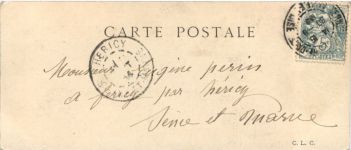 CARTE POSTALE
HÉRICY
Monsieur Eugène perin
a fericy par héricy
Seine et Marne
C. L. C.